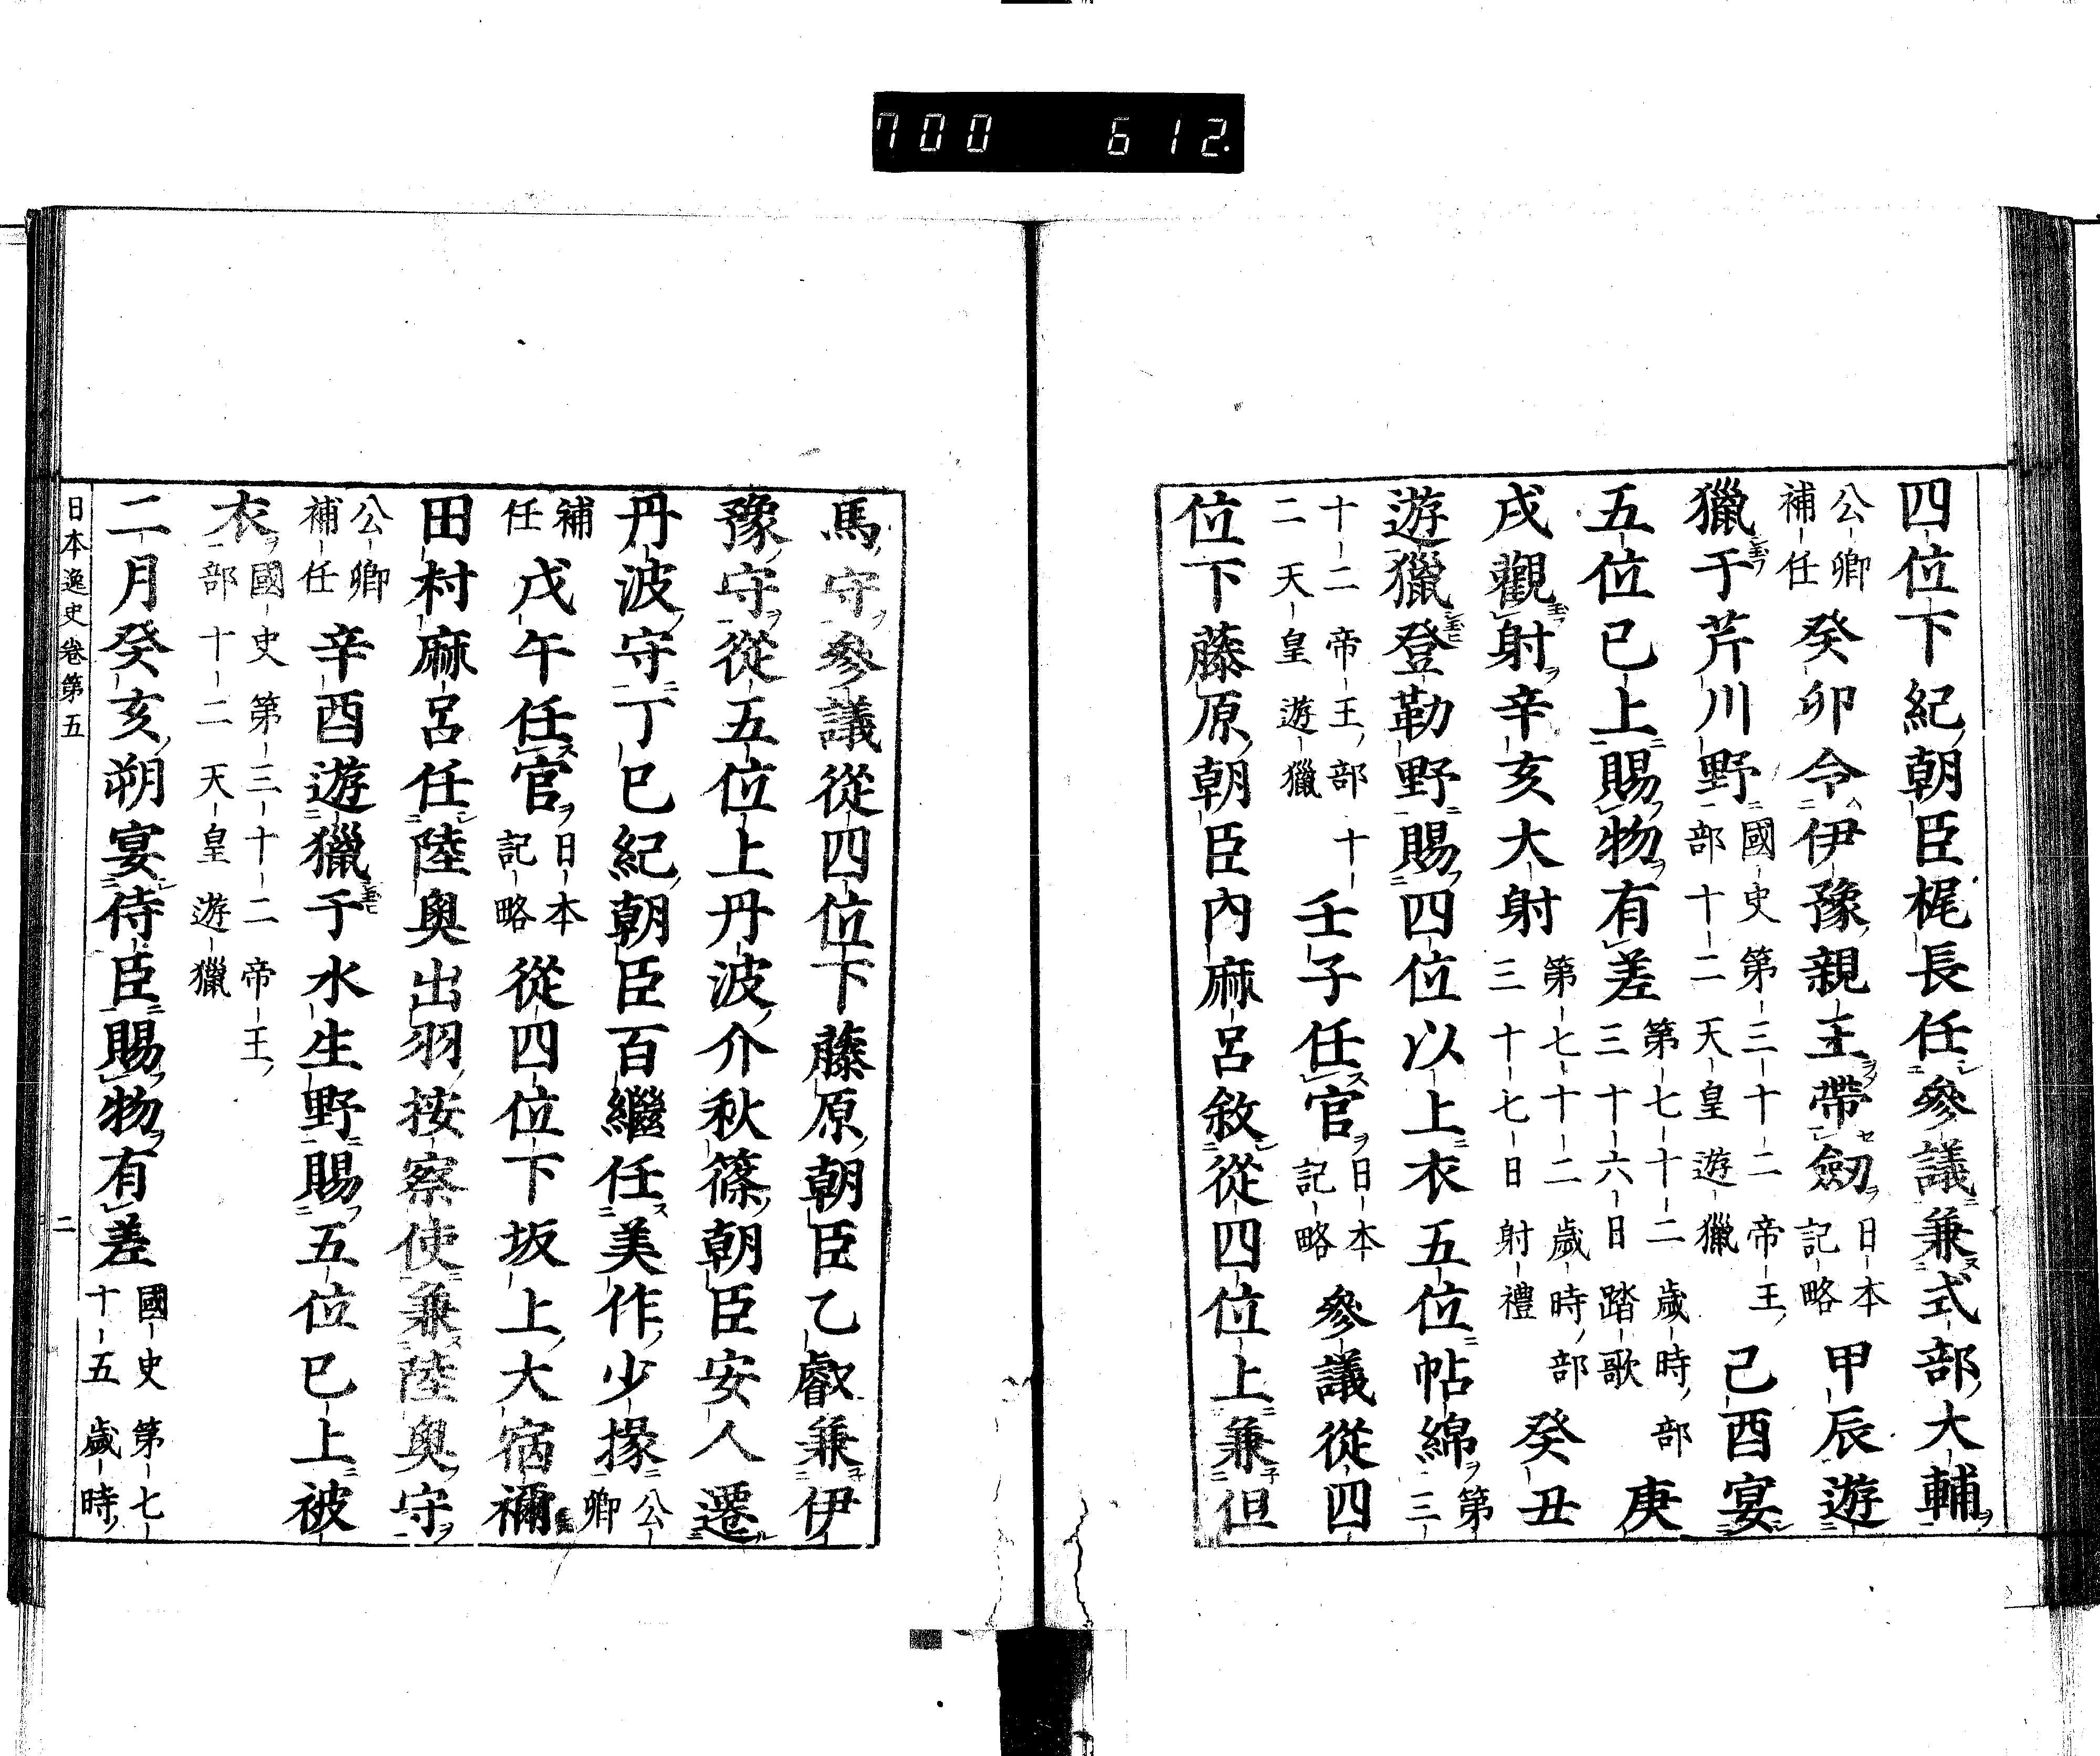 700 612.
四位下紀朝臣梶長任參議兼式部大輔
公卿補任 癸卯令伊豫親王帶劒 日本記略 甲辰遊
獵于芹川野 國史第三十二帝王部十二天皇遊獵 己酉宴
五位已上賜物有差 第七十二歲時部三十六日踏歌 庚
戌觀射辛亥大射 第七十二歲時部三十七日射禮 癸丑
遊獵登勒野賜四位以上衣五位帖綿 第三
十二帝王部十二天皇遊獵 壬子任官 日本記略 參議從四
位下藤原朝臣內麻呂敘從四位上兼但
馬守參議從四位下藤原朝臣乙叡兼伊
豫守從五位上丹波介秋篠朝臣安人遷
丹波守丁巳紀朝臣百繼任美作少掾 公卿
補任 戊午任官 日本記略 從四位下坂上大宿禰
田村麻呂任陸奧出羽按察使兼陸奧守
公卿補任 辛酉遊獵于水生野賜五位已上被
衣 國史第三十二帝王部十二天皇遊獵
二月癸亥朔宴侍臣賜物有差 國史第七十五歲時
日本逸史卷第五 二